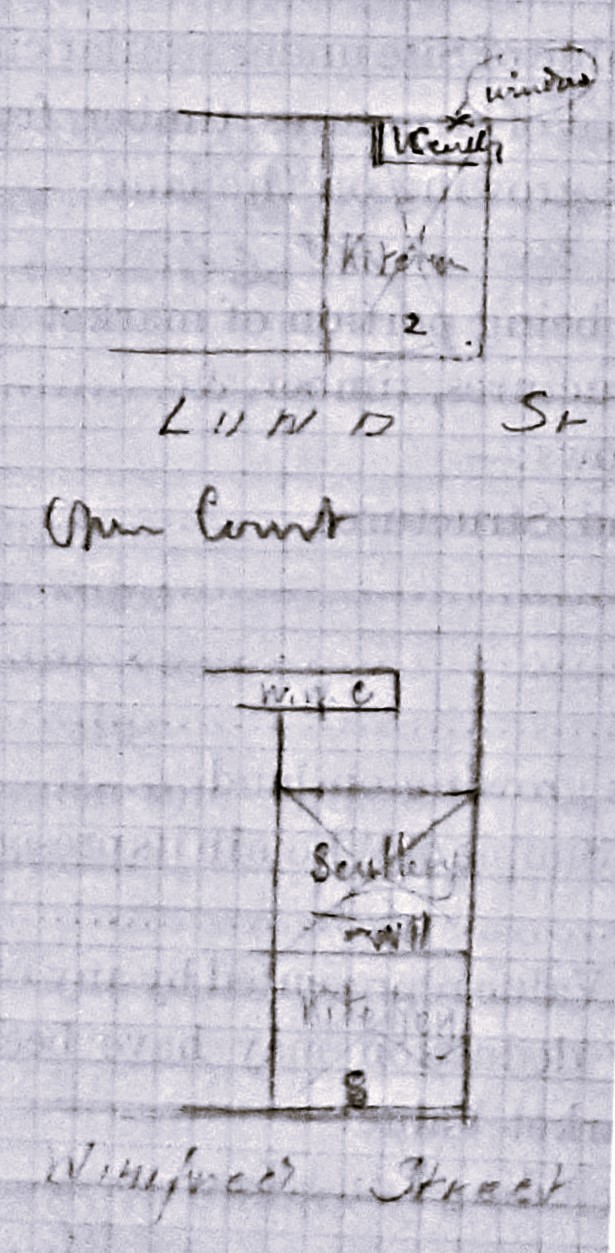 window
Scully
Kitchen
2
LUND St
Open Court
W. C
Scullery
will
Kitchen
8
Winifred Street